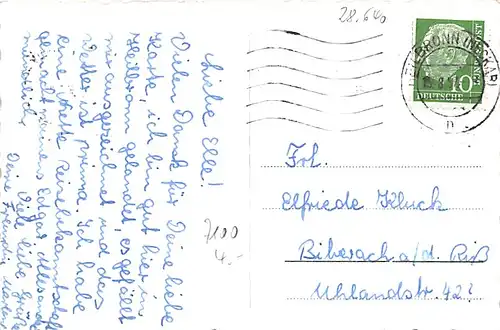 28.640
HEILBRONN (NECKAR)
10
DEUTSCHE
Liebe Elle!
Vielen Dank für Deine liebe
Karte, ich bin gut hier in
Heilbronn gelandet, es gefällt
mir ausgezeichnet und das
Wetter ist prima. Ich habe
eine nette Reisebekanntschaft
gemacht
mündlich.
Viele liebe Grüße
Deine Freundin
7100
4.-
Frl.
Elfriede Kluck
Biberach a/d. Riß
Uhlandstr. 42?